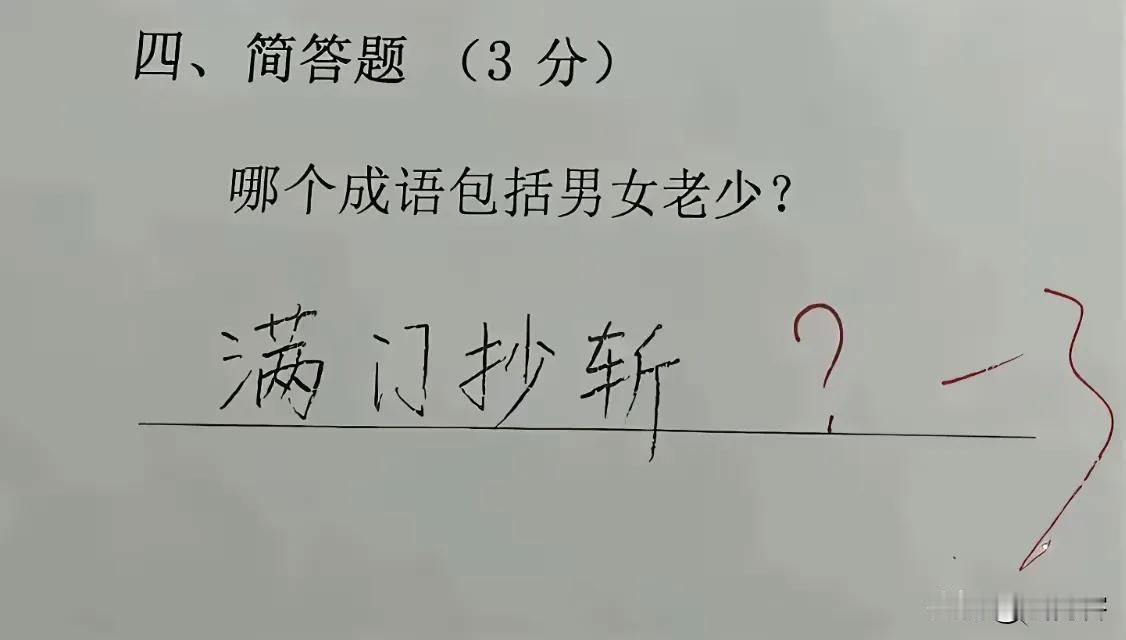 四、简答题 （3 分）
哪个成语包括男女老少？
满门抄斩 ? -3